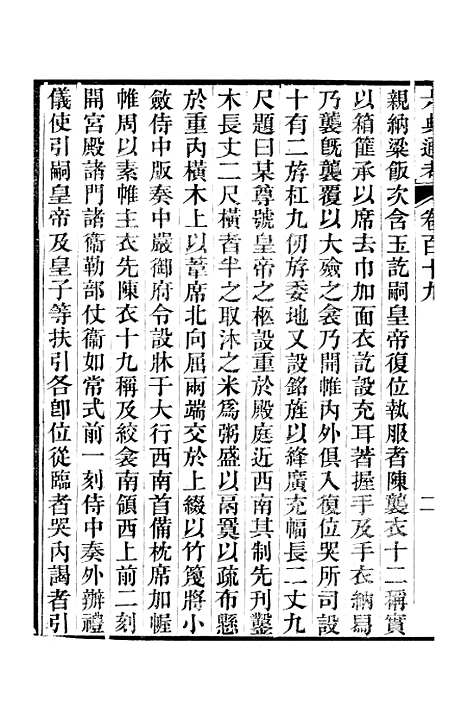 六典通考 卷百十九 二
親納粱飯次含玉訖嗣皇帝復位執服者陳襲衣十二稱實
以箱篚承以席去巾加面衣訖設充耳著握手及手衣納舄
乃襲旣襲覆以大斂之衾乃開帷內外俱入復位哭所司設
十有二斿杠九仞斿委地又設銘旌以絳廣充幅長二丈九
尺題曰某尊號皇帝之柩設重於殿庭近西南其制先刊鑿
木長丈二尺橫者半之取沐之米爲粥盛以鬲冪以疏布懸
於重丙橫木上以葦席北向屈兩端交於上綴以竹篾將小
斂侍中版奏中嚴御府令設牀于大行西南首備枕席加幄
帷周以素帷主衣先陳衣十九稱及絞衾南領西上前二刻
開宮殿諸門諸衞勒部仗衞如常式前一刻侍中奏外辦禮
儀使引嗣皇帝及皇子等扶引各卽位從臨者哭內謁者引